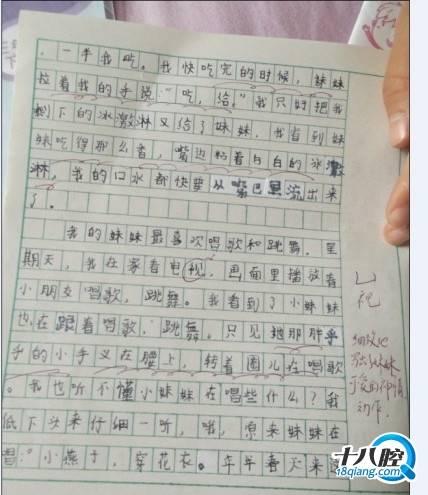 ，一半我吃。我快吃完的时候，妹妹
拉着我的手说：“吃，给。”我只好把我
剩下的冰激淋又给了妹妹，我看到妹
妹吃得那么香，嘴边粘着白白的冰激
淋，我的口水都快要从嘴巴里流出来
了。
我的妹妹最喜欢唱歌和跳舞。星
期天，我在家看电视，画面里播放着
小朋友唱歌，跳舞。我看到了小妹妹
也在跟着唱歌，跳舞。只见她那胖乎
乎的小手叉在腰上，转着圈儿在唱歌
。我也听不懂小妹妹在唱些什么？我
低下头来仔细一听，哦，原来妹妹在
唱：“小燕子，穿花衣。年年春天来这
视
细致地
动作。
十八腔
18qiang.com